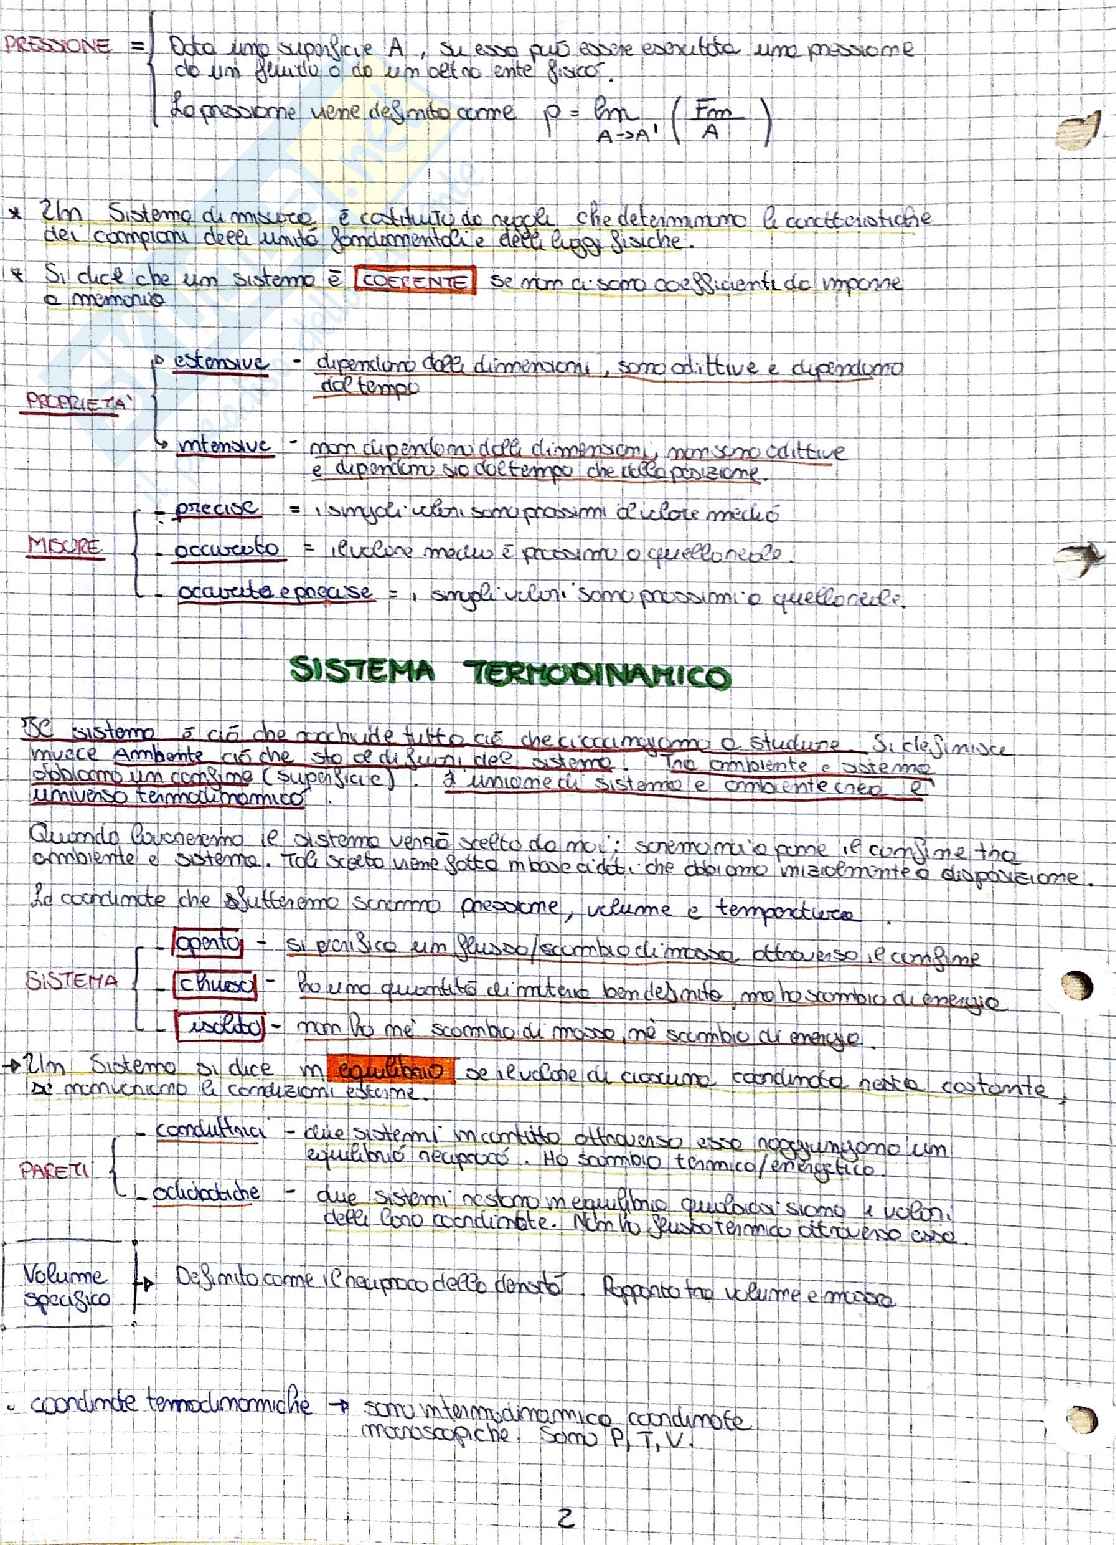 PRESSIONE = Data una superficie A, su essa può essere esercitata una pressione
da un fluido o da un altro ente fisico.
La pressione viene definita come p = lim A→A' (Fn/A)
* Un Sistema di misura è costituito da regole che determinano le caratteristiche
dei campioni delle unità fondamentali e delle leggi fisiche.
* Si dice che un sistema è COERENTE se non ci sono coefficienti da imporre
a memoria
estensive - dipendono dalle dimensioni, sono additive e dipendono
dal tempo
PROPRIETA'
intensive - non dipendono dalle dimensioni, non sono additive
e dipendono sia dal tempo che dalla posizione.
- precise = i singoli valori sono prossimi al valore medio
MISURE - accurato = il valore medio è prossimo a quello reale.
- accurate e precise = i singoli valori sono prossimi a quello reale.
SISTEMA TERMODINAMICO
Il sistema è ciò che racchiude tutto ciò che ci accingiamo a studiare. Si definisce
invece Ambiente ciò che sta al di fuori del sistema. Tra ambiente e sistema
abbiamo un confine (superficie). L'unione di sistema e ambiente crea l'
universo termodinamico.
Quando lavoreremo il sistema verrà scelto da noi: saremo noi a porre il confine tra
ambiente e sistema. Tale scelta viene fatta in base ai dati che abbiamo inizialmente a disposizione.
Le coordinate che sfrutteremo saranno pressione, volume e temperatura.
- aperto - si verifica un flusso/scambio di massa attraverso il confine
SISTEMA - chiuso - ho una quantità di materia ben definita, ma ho scambio di energia
- isolato - non ho nè scambio di massa, nè scambio di energia.
→ Un Sistema si dice in equilibrio se il valore di ciascuna coordinata resta costante,
se manteniamo le condizioni esterne.
- conduttrici - due sistemi in contatto attraverso esse raggiungono un
equilibrio reciproco. Ho scambio termico/energetico.
PARETI
- adiabatiche - due sistemi restano in equilibrio qualsiasi siano i valori
delle loro coordinate. Non ho flusso termico attraverso esse.
Volume
specifico → Definito come il reciproco della densità. Rapporto tra volume e massa
. coordinate termodinamiche → sono in termodinamica coordinate
macroscopiche. Sono P, T, V.
2